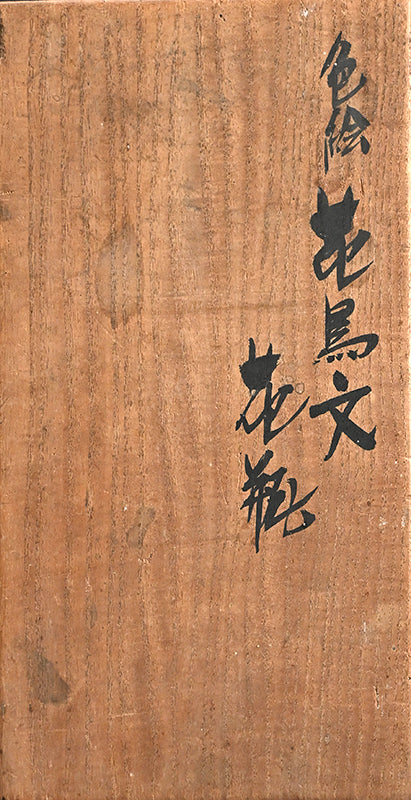 色絵花鳥文
花瓶